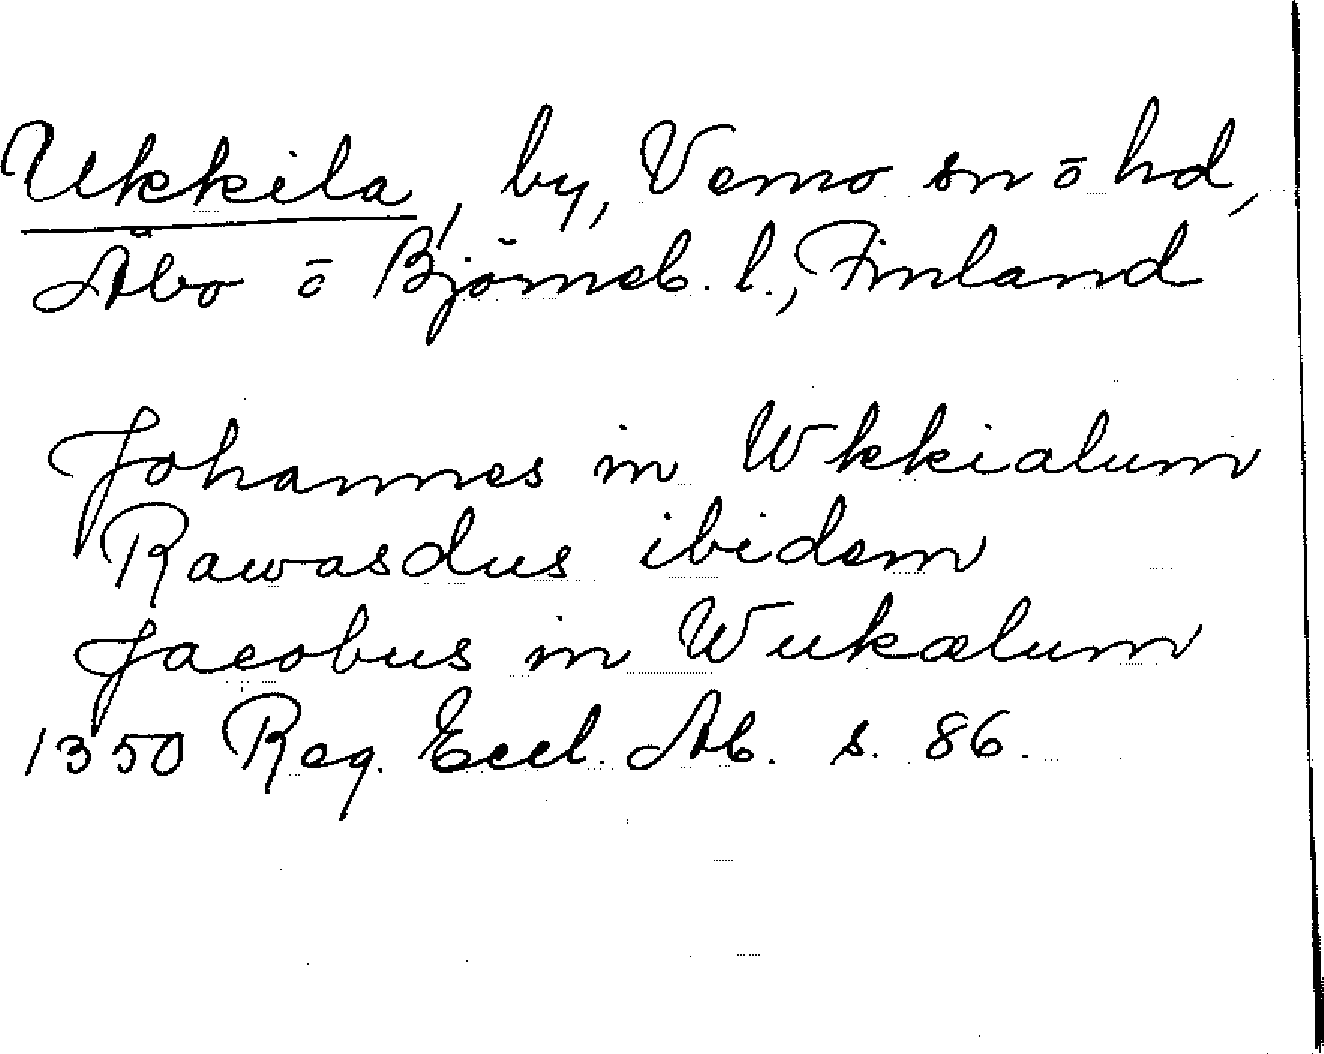 Ukkila, by, Vemo sn o hd,
Åbo o Björneb. l., Finland
Johannes in Wkkialum
Rawasdus ibidem
Jacobus in Wukalum
1350 Reg. Eccl. Ab. s. 86.